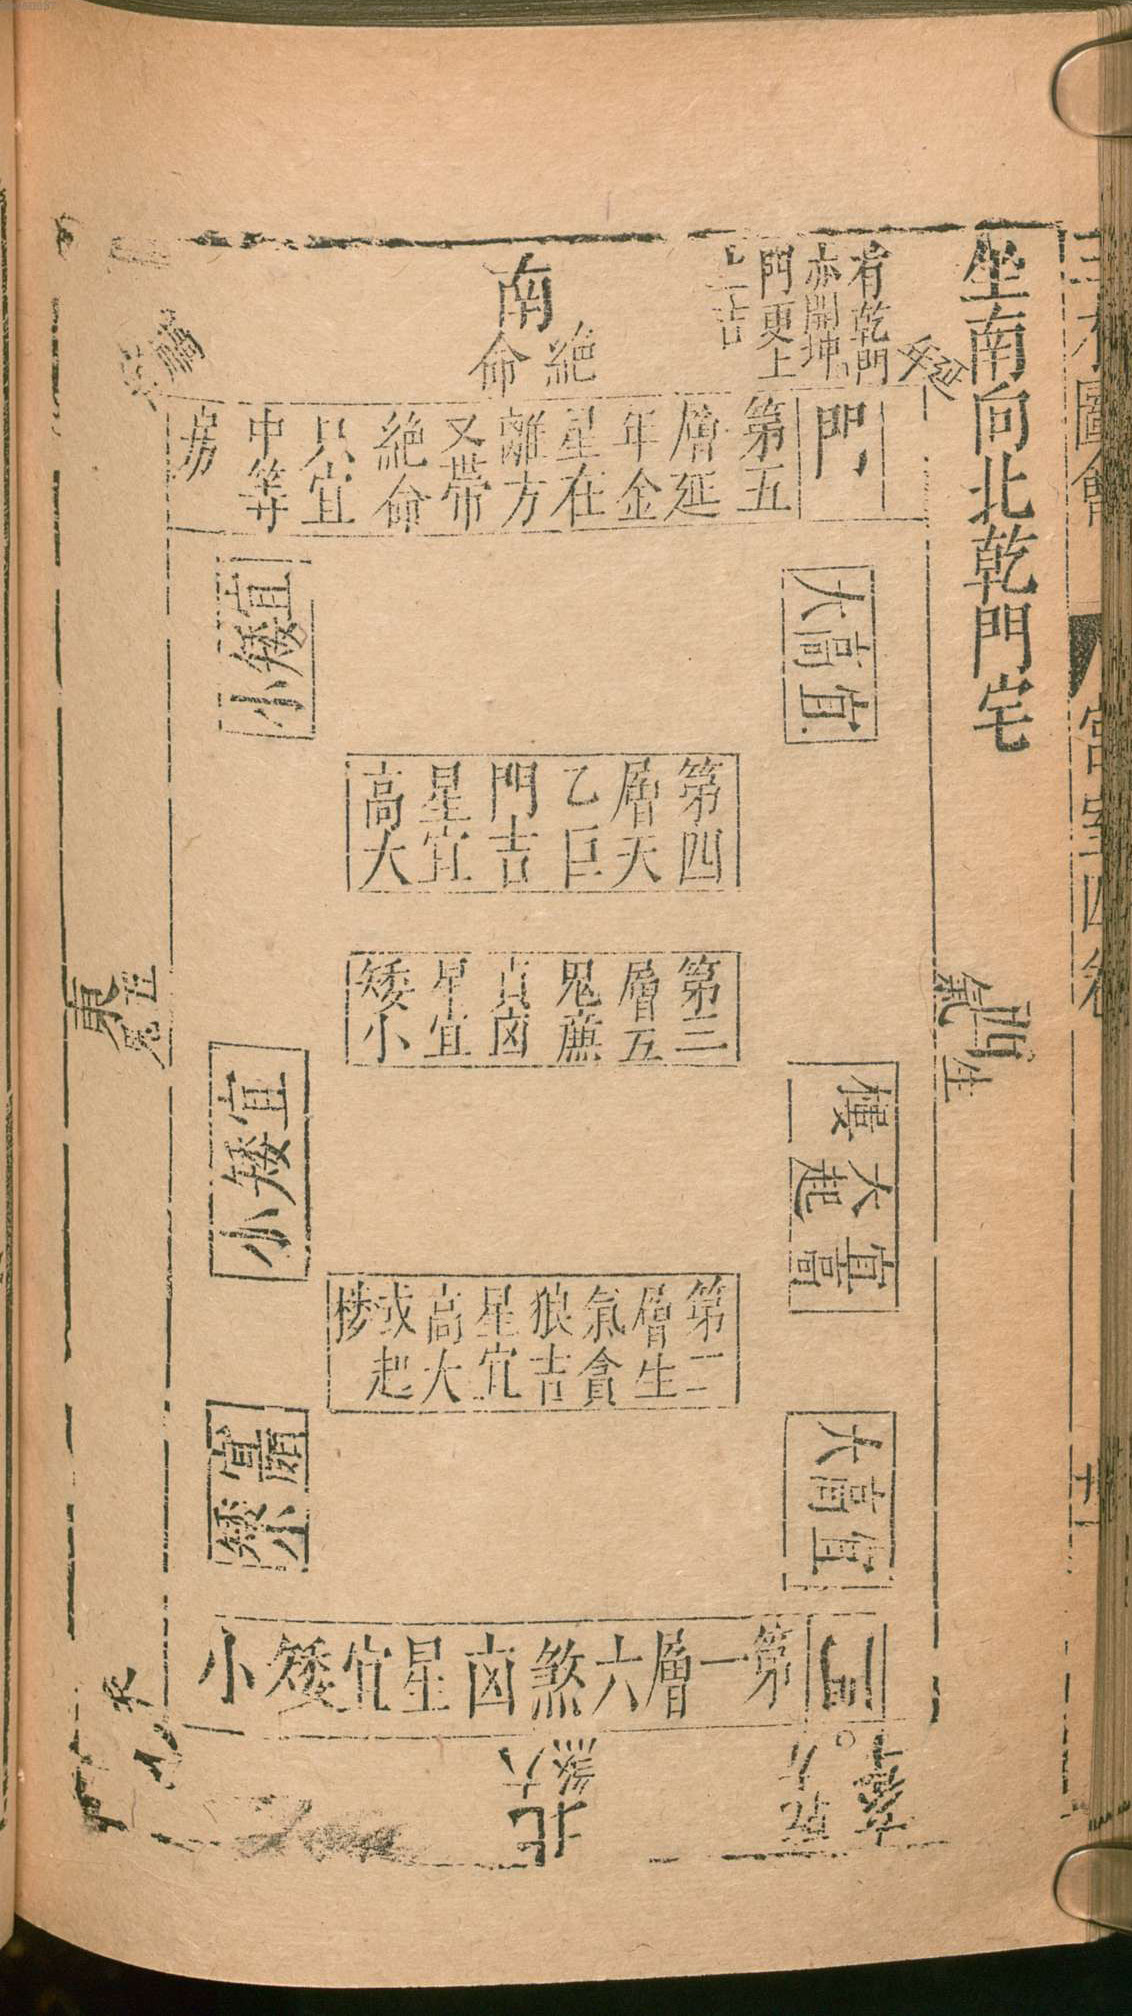 三才圖會
宮室四卷
坐南向北乾門宅
有乾門
亦開坤
門更上
上吉
南
絕
命
門
第五
層延
年金
星在
離方
又帶
絕命
只宜
中等
房
宜高大
宜矮小
第四
層天
乙巨
門吉
星宜
高大
第三
層五
鬼廉
貞凶
星宜
矮小
西
生氣
東
五鬼
宜高
大起
樓
宜矮小
第二
層生
氣貪
狼吉
星宜
高大
或起
宜高大
宜矮小
門
第一層六煞凶星宜矮小
六煞
北